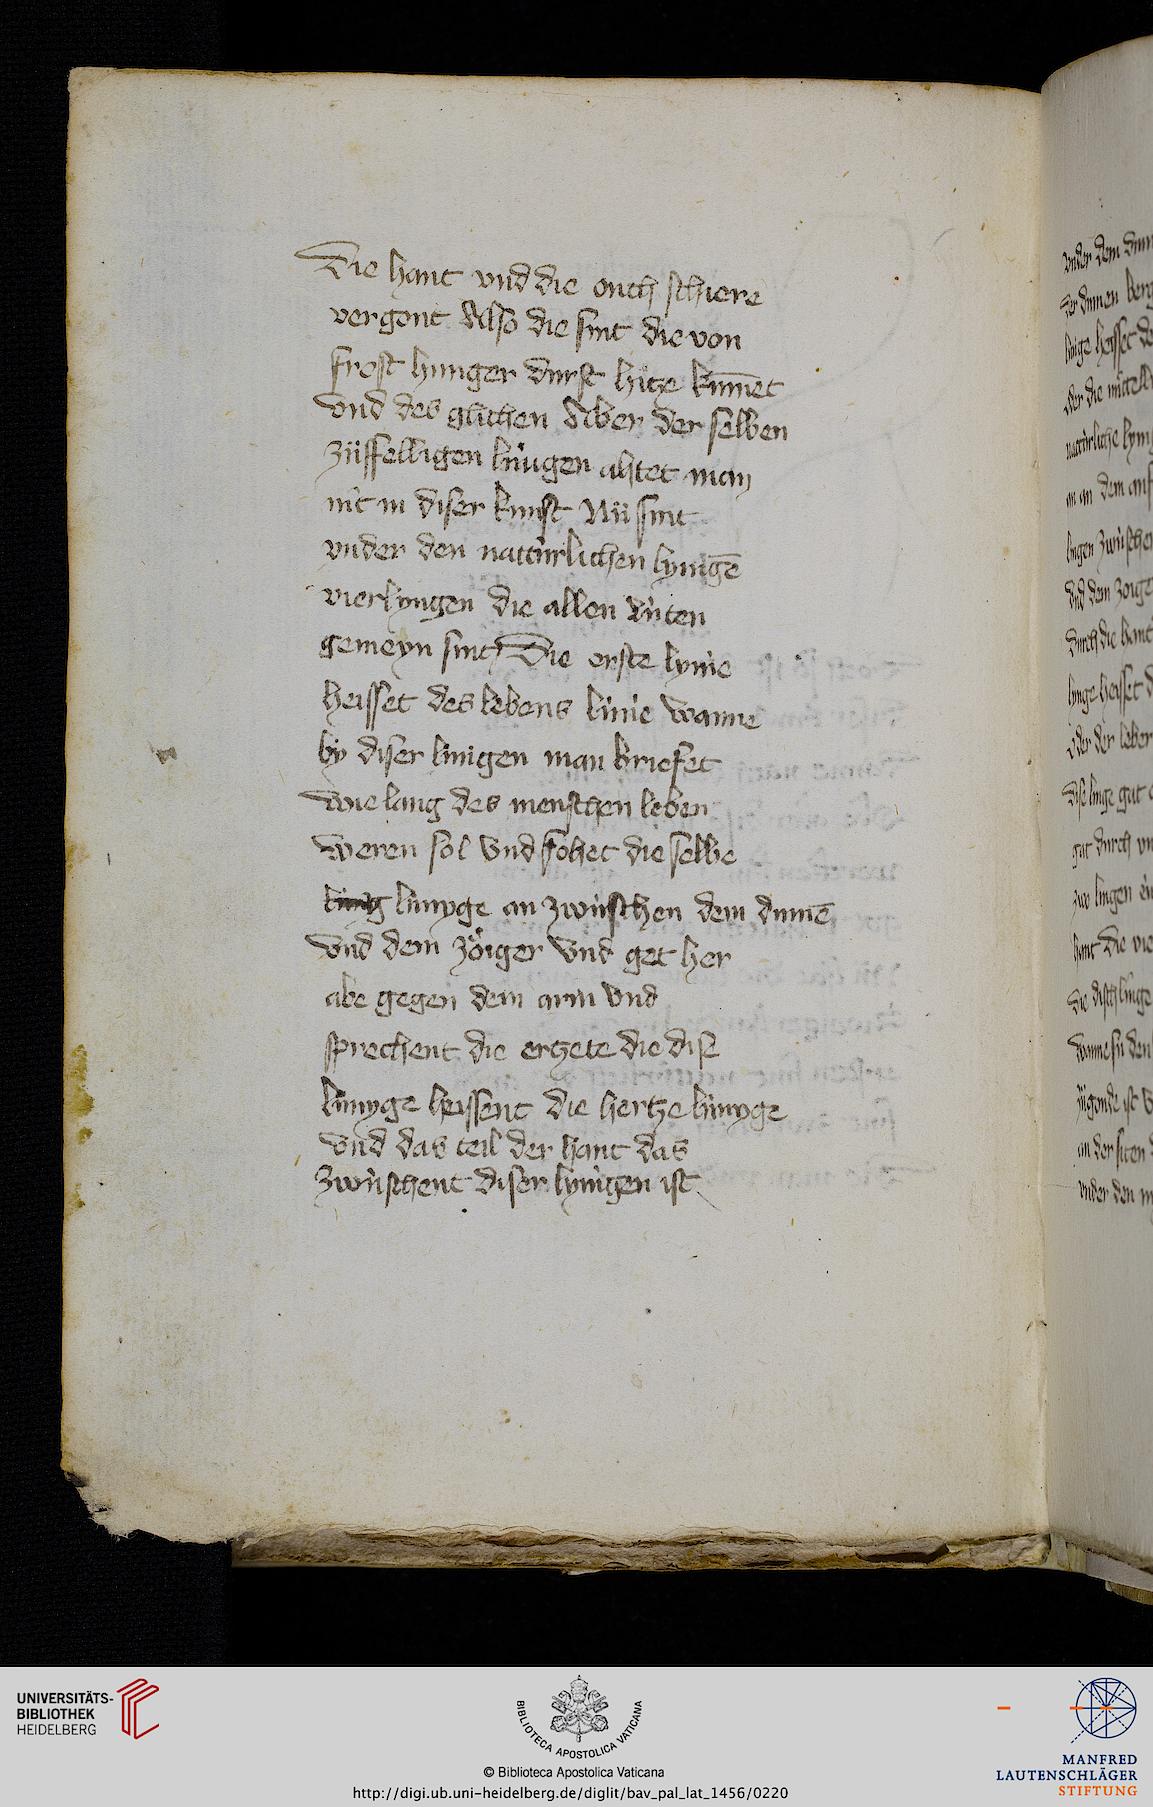 Die hant vnd die ouch schiere
vergont Also die sint die von
frost hunger durst hitze kum̄et
Vnd des glichen Aber der selben
zůffelligen linigen ahtet man
nit in diser kunst Nů sint
vnder den natturlichen lynigē
vier lyngen die allen lúten
gemeyn sint Die erste lynie
heisset des lebens linie wanne
by diser linigen man briefet
wie lang des menschen leben
weren sol Vnd fohet die selbe
linnyge an zwúschen dem dumē
vnd dem zöiger Vnd get her
abe gegen dem arm Vnd
sprechent die ertzete die dise
linnyge heissent die hertze linnyge
vnd das teil der hant das
zwúschent diser lynigen ist
vnder dem
der dumen
linige heisset
der die
natúrliche
an an dem
lingen zwúschen
Vnd dem zoige
durch die hant
lynge heisset
oder der leber
dise linge gut
gut durch
zwo lingen
hant die
die disch linge
wanne
ist
an der siten
vnder den
UNIVERSITÄTS-
BIBLIOTHEK
HEIDELBERG
BIBLIOTECA APOSTOLICA VATICANA
© Biblioteca Apostolica Vaticana
http://digi.ub.uni-heidelberg.de/diglit/bav_pal_lat_1456/0220
MANFRED
LAUTENSCHLÄGER
STIFTUNG